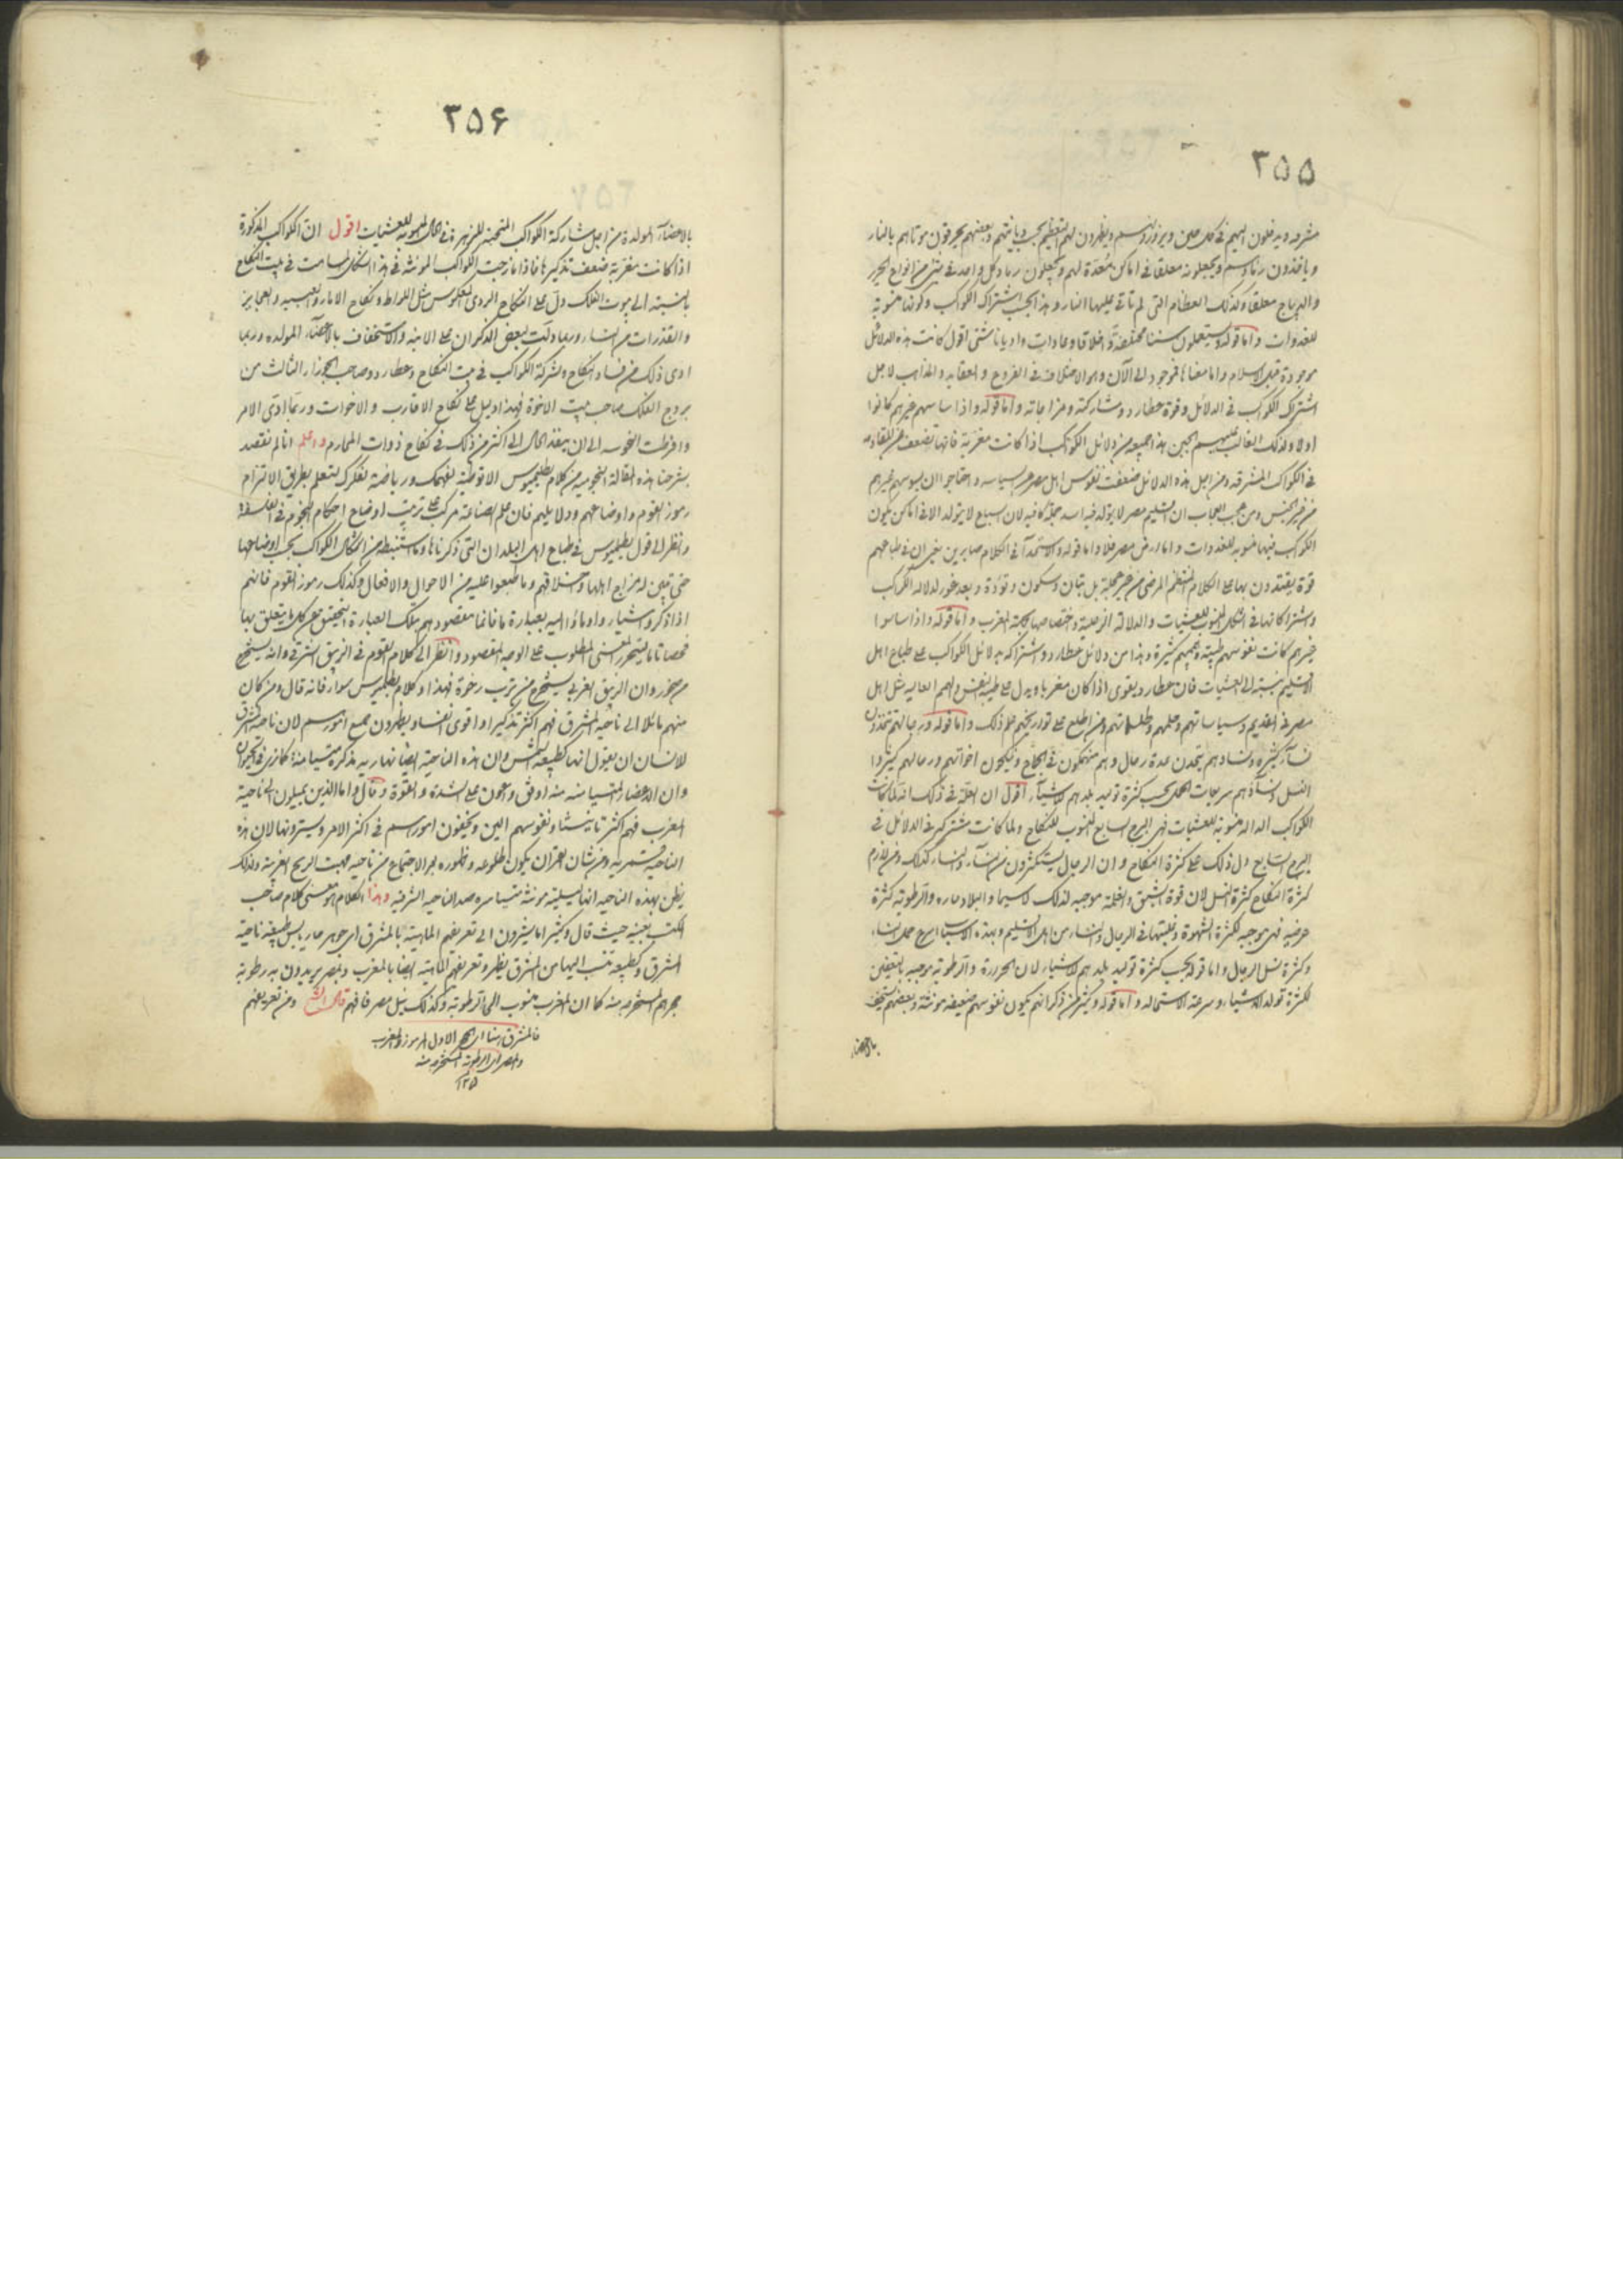 ٣۵۵
مشرقه ويدخلون اليهم في كل حين ويزورونهم ويظهرون لهم التعظيم بحسب ديانتهم وبعضهم يحرقون موتاهم بالنار
وياخذون رمادهم ويجعلونه معلقا في اماكن مُعدّة لهم ويجعلون رماد كل واحد في شئ من انواع الحرير
والديباج معلقا وكذلك العظام التي لم تأتِ عليها النار وهذا بحسب اشتراك الكواكب وكونها منسوبة
للغدوات واما قوله ويستعملون سننا مختلفة واخلاقا وعادات واديانا شتى اقول كانت هذه الدلائل
موجودة قبل الاسلام واما معناها فموجود الى الآن وهو الاختلاف في الفروع والعقايد والمذاهب لاجل
اشتراك الكواكب في الدلائل وقوة عطارد ومشاركته ومزاجاته واما قوله واذا ساسهم غيرهم كانوا
اذلاء وكذلك الغالب عليهم الجبن هذا جميعه من دلائل الكواكب اذا كانت مغربة فانها تضعف عن المقاومة
في الكواكب المشرقة ومن اجل هذه الدلائل ضعفت نفوس اهل مصر عن السياسه واحتاجوا ان يسوسهم غيرهم
من غير الجنس ومن عجب العجاب ان اقليم مصر لا يولد فيه اسد جملة كافيه لان السبع لا يتولد الا في اماكن يكون
الكواكب فيها منسوبه للغدوات واما ارض مصر فلا واما قوله والاستخذآء في الكلام صابرين يعني ان في طباعهم
قوة يقتدرون بها على الكلام المنتظم المرضي من غير عجلة بل بتان وسكون وتؤدة وبعد غور لدلالة الكواكب
واشتراكاتها في الشكل المنسوب للعشيات والدلالة الزحلية واختصاصها بجهة المغرب واما قوله واذا ساسوا
غيرهم كانت نفوسهم طيبة وهممهم كثيرة وهذا من دلائل عطارد واشتراكه بدلائل الكواكب على طباع اهل
الاقليم بنسبته الى العشيات فان عطارد يقوى اذا كان مغربا ويدل على طيبة النفس والهمم العاليه مثل اهل
مصر في القديم وسياساتهم وعلمهم وطلسماتهم ومن اطلع على تواريخهم علم ذلك واما قوله ورجالهم يتخذون
نسآء كثيرة ونساؤهم يتخذن عدة رجال وهم منهمكون في الجماع وينكحون اخواتهم ورجالهم كثيروا
النسل ونسآؤهم سريعات الحمل بحسب كثرة توليد بلدهم للاشيآء اقول ان العلّة في ذلك انه لما كانت
الكواكب الدالة منسوبة للعشيات فهي البرج السابع المنسوب للنكاح ولما كانت مشتركة في الدلائل في
البرج السابع دل ذلك على كثرة النكاح وان الرجال يستكثرون من النسآء والنسآء كذلك ومن لازم
كثرة النكاح كثرة النسل لان قوة الشبق والغلمة موجبه لذلك لا سيما والبلاد حاره والرطوبة كثرة
عرضيه فهي موجبه لكثرة الشهوة وغلبتها في الرجال والنساء من اهل الاقليم وبهذه الاسباب اسرع حمل النساء
وكثرة نسل الرجال واما قوله بحسب كثرة توليد بلدهم للاشياء لان الحرارة والرطوبة موجبه بالتعفين
لكثرة تولد الاشياء وسرعة الاستحاله واما قوله وكثير من ذكرانهم يكون نفوسهم ضعيفه مؤنثة وبعضهم يستخف
بالاعضاء
٣۵۶
بالاعضآء المولدة من اجل مشاركة الكواكب المتحيزة للزهرة في الحال المنسوبة للعشيات اقول ان الكواكب المذكورة
اذا كانت مغربة ضعف تذكيرها فاذا مازجت الكواكب المؤنثة في هذا الشكل وسامت في بيت النكاح
بالنسبة الى بيوت الفلك دل على النكاح الردي المعكوس مثل اللواط ونكاح الاماء والعبيد والعجايز
والقذرات من النساء وربما دلّت لبعض الذكران على الابنه والاستخفاف بالاعضآء المولده وربما
ادى ذلك من فساد النكاح ولشركة الكواكب في بيت النكاح وعطارد وصاحب الجوزاء الثالث من
بروج الفلك صاحب بيت الاخوة فهذا دليل على نكاح الاقارب والاخوات وربما ادّى الامر
وافرطت النحوسه الى ان ينفذ الحال الى اكثر من ذلك في نكاح ذوات المحارم واعلم انا لم نقصد
بشرحنا هذه المقالة النجومية من كلام بطليموس الا توطئة لفهمك ورياضة لفكرك لتعلم بطريق الالتزام
رموز القوم واوضاعهم ودلايلهم فان علم الصناعة مركب على ترتيب اوضاع احكام النجوم في الفلسفة
وانظر الى قول بطليموس في طباع اهل البلدان التي ذكرناها وما استنبطه من اشكال الكواكب بحسب اوضاعها
حتى تبين له مزاج اهلها واخلاقهم وما طبعوا عليه من الاحوال والافعال وكذلك رموز القوم فانهم
اذا ذكروا شياء واوماؤا اليه بعبارة ما فانما مقصودهم بتلك العبارة التحقيق عن كل ما يتعلق بها
فحصا تاما ليتحرر المعنى المطلوب على الوجه المقصود وانظر الى كلام القوم في الزيبق الشرقي وانه يستخرج
من صخور وان الزيبق الغربي يستخرج من ترب رخوة فهذا وكلام بطلميوس سواء فانه قال ومن كان
منهم مائلا الى ناحية المشرق فهم اكثر تذكيرا واقوى نفسا ويظهرون جميع امورهم لان ناحية المشرق
لانسان ان يقول انها كطبيعة الشمس وان هذه الناحية ايضا نهاريه مذكرة متيامنة كما نرى في الحيوان
وان الاعضاء المتيامنه منه اوفق واعون على الشدة والقوة وقال واما الذين يميلون الى ناحية
المغرب فهم اكثر تانيثا ونفوسهم الين ويخفون امورهم في اكثر الامر ويسترونها لان هذه
الناحية قمريه ومن شان القمر ان يكون طلوعه وظهوره بعد الاجتماع من ناحيه مهب الريح الغربية ولذلك
يظن بهذه الناحيه انها ليلية مؤنثة متياسره ضد الناحيه الشرقيه وهذا الكلام هو معنى كلام صاحب
المكتسب بعينه حيث قال وكثيرا ما يشيرون الى تعريفهم الماهية بالمشرق اي جوهر حار يابس طبيعته ناحية
المشرق وكطبيعه تنسب اليها من المشرق ينظر وتعريفهم الماهية ايضا بالمغرب وبمصر يريدون به رطوبة
حجرهم المستخرجة منه كما ان المغرب منسوب الى الرطوبة وكذلك نيل مصر فافهم قال الشيخ ومن تعريفهم
فالمشرق هنا اي الحجر الاول المرموز والمغرب
ومصر اي الرطوبة المستخرجة منه
١٢٥